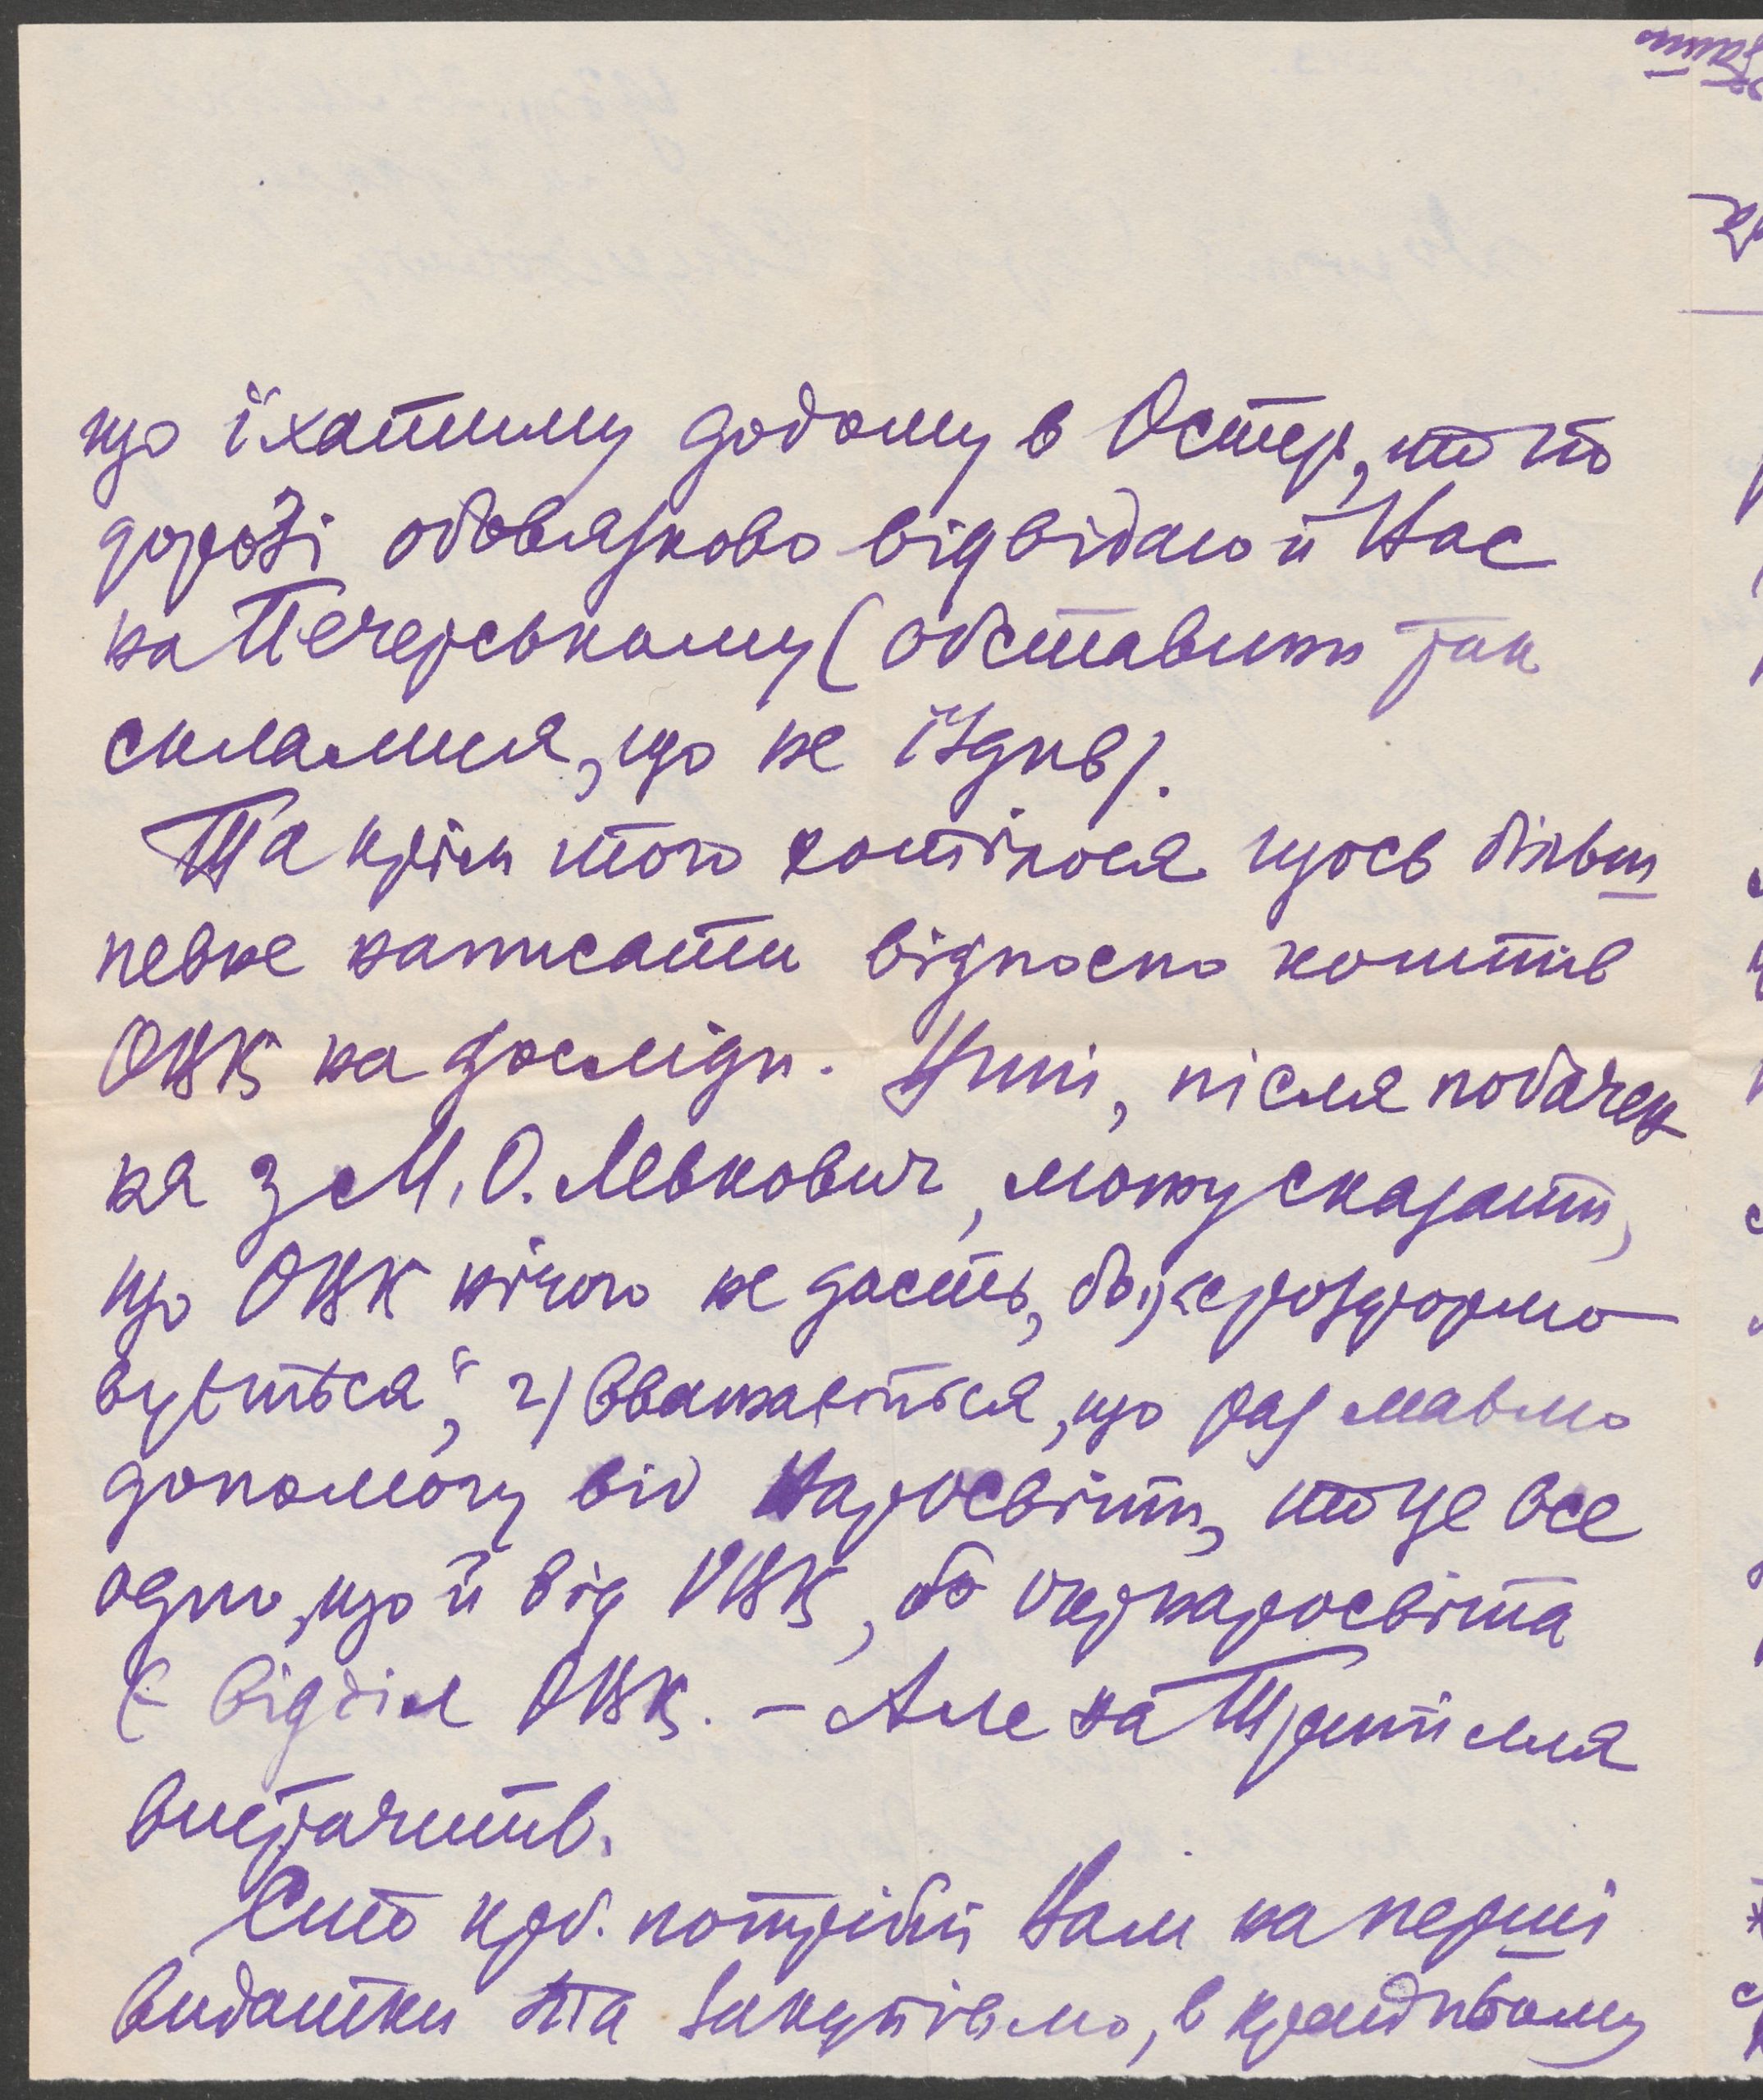 що їхатиму додому в Остер, то по
дорозі обовязково відвідаю й Вас
на Печерському (обставини так
склалися, що не їздив).
Та крім того хотілося щось більш
певне написати відносно коштів
ОВК на досліди. Нині, після побачен
ня з М. О. Левкович, можу сказати,
що ОВК нічого не дасть, бо 1) „розформо
вується“, 2) вважається, що раз маємо
допомогу від Наросвіти, то це все
одно, що й від ОВК, бо Окрнаросвіта
є відділ ОВК. – Але на Трипілля
вистачить.
Сто крб. потрібні Нам на перші
видатки та закупівлю, в крайньому